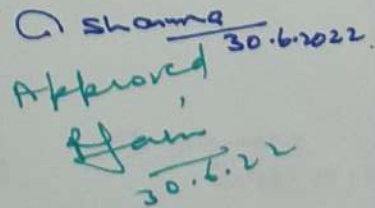 G Sharma
30.6.2022
Approved
Jain
30.6.22